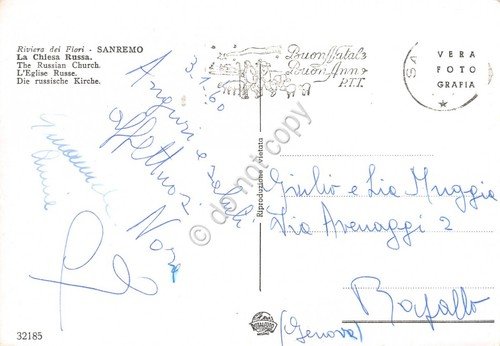 Riviera dei Fiori - SANREMO
La Chiesa Russa.
The Russian Church.
L'Eglise Russe.
Die russische Kirche.
3.1.60
Auguri e saluti
affettuosi
Nora
Emanuela
Buon Natale
Buon Anno
P.T.T.
VERA
FOTO
GRAFIA
SA
Riproduzione vietata
do not copy
Giulio e Lia Muggia
Via Avenaggi 2
Rapallo
(Genova)
32185